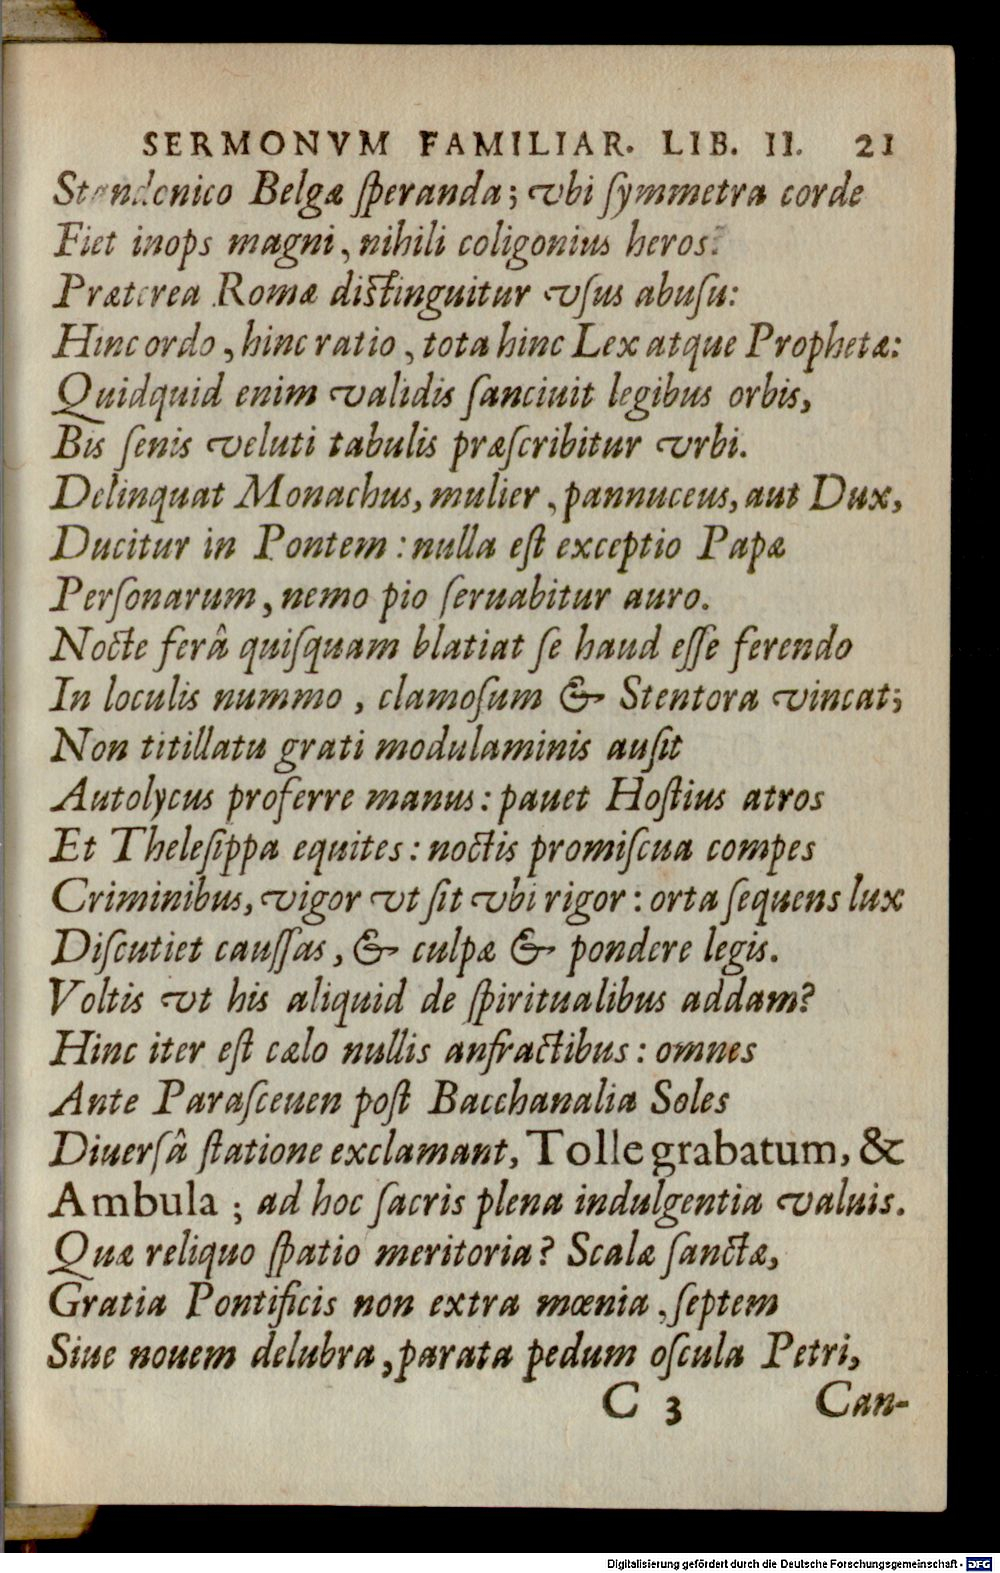 SERMONVM FAMILIAR. LIB. II. 21
Standonico Belgæ ſperanda; vbi ſymmetra corde
Fiet inops magni, nihili coligonius heros?
Præterea Romæ diſtinguitur vſus abuſu:
Hinc ordo, hinc ratio, tota hinc Lex atque Prophetæ:
Quidquid enim validis ſanciuit legibus orbis,
Bis ſenis veluti tabulis præſcribitur vrbi.
Delinquat Monachus, mulier, pannuceus, aut Dux,
Ducitur in Pontem: nulla eſt exceptio Papæ
Perſonarum, nemo pio ſeruabitur auro.
Nocte ferâ quiſquam blatiat ſe haud eſſe ferendo
In loculis nummo, clamoſum & Stentora vincat;
Non titillatu grati modulaminis auſit
Autolycus proferre manus: pauet Hoſtius atros
Et Theleſippa equites: noctis promiſcua compes
Criminibus, vigor vt ſit vbi rigor: orta ſequens lux
Diſcutiet cauſſas, & culpæ & pondere legis.
Voltis vt his aliquid de ſpiritualibus addam?
Hinc iter eſt cælo nullis anfractibus: omnes
Ante Paraſceuen poſt Bacchanalia Soles
Diuerſâ ſtatione exclamant, Tolle grabatum, &
Ambula; ad hoc ſacris plena indulgentia valuis.
Quæ reliquo ſpatio meritoria? Scalæ ſanctæ,
Gratia Pontificis non extra mœnia, ſeptem
Siue nouem delubra, parata pedum oſcula Petri,
C 3 Can-
Digitalisierung gefördert durch die Deutsche Forschungsgemeinschaft - DFG